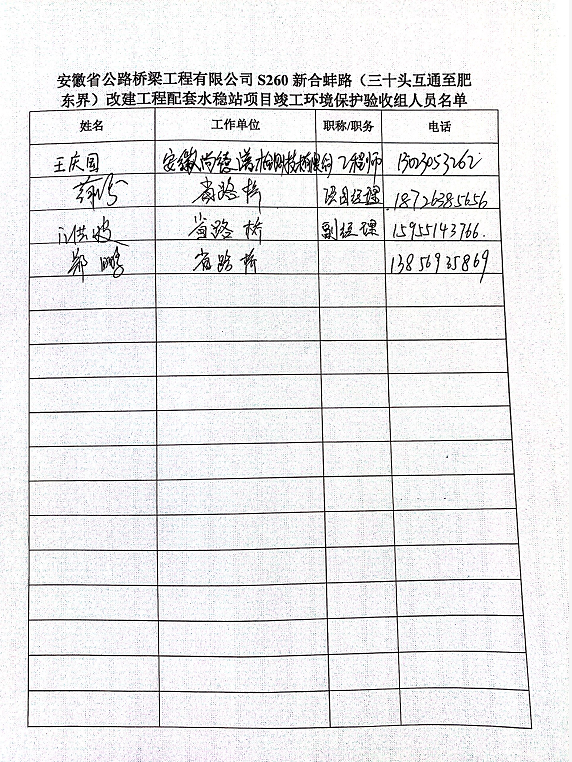 安徽省公路桥梁工程有限公司 S260 新合蚌路（三十头互通至肥
东界）改建工程配套水稳站项目竣工环境保护验收组人员名单
姓名 工作单位 职称/职务 电话
王庆国 安徽尚德谱检测技术 工程师 13023053262
省路桥 项目经理 18726385656
省路桥 副经理 15955143766.
郑鹏 省路桥 13856935869